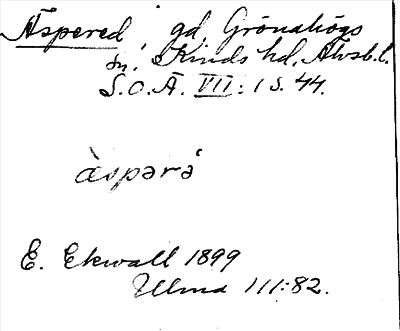 Äspered gd, Grönahögs
sn, Kinds hd, Älvsb. l.
S.O.Ä. VII:1 s. 44.
äspərə
E. Ekwall 1899
Ulma 111:82.